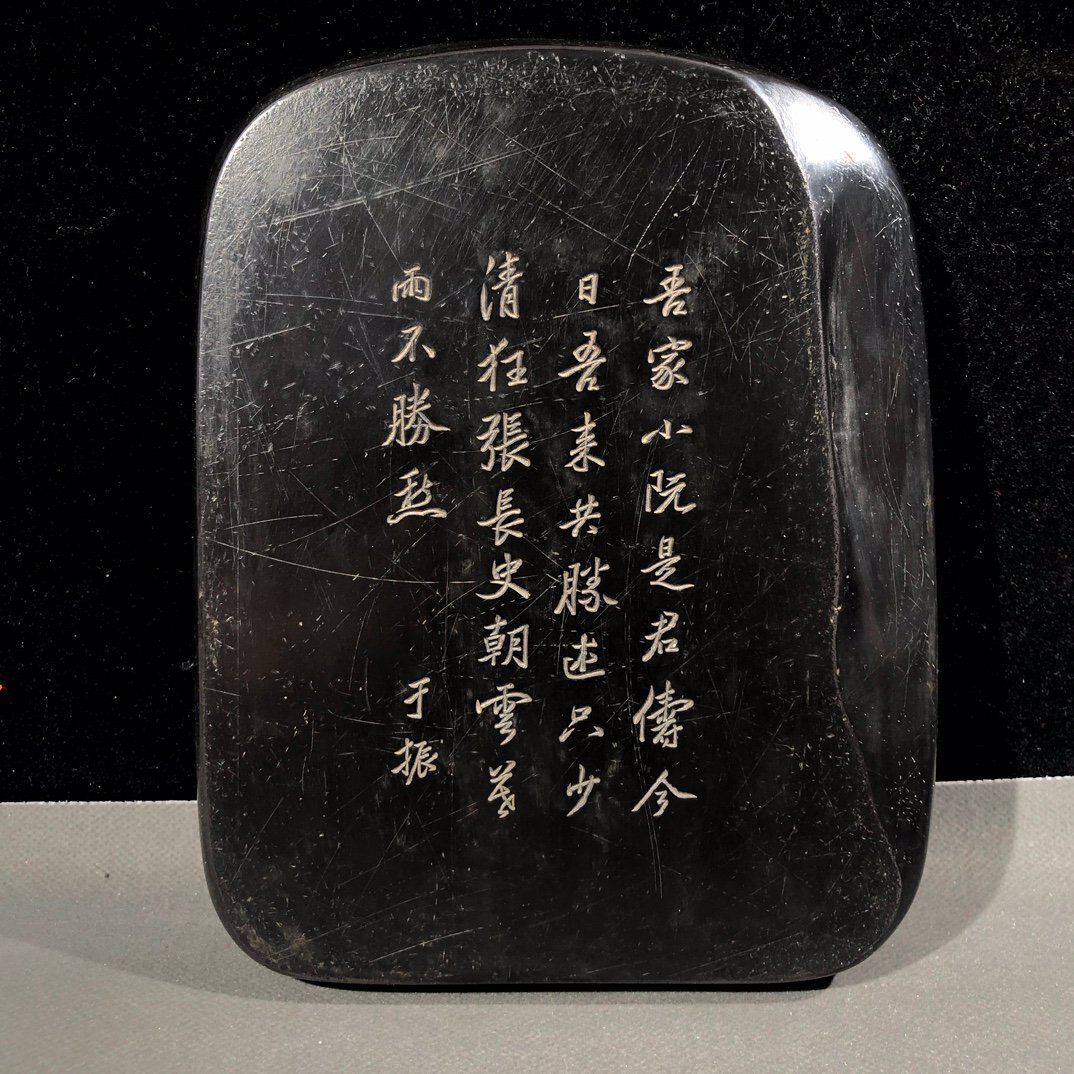 吾家小阮是君儔今
日吾来共勝只少
清狂張長史朝雲暮
雨不勝愁
于振